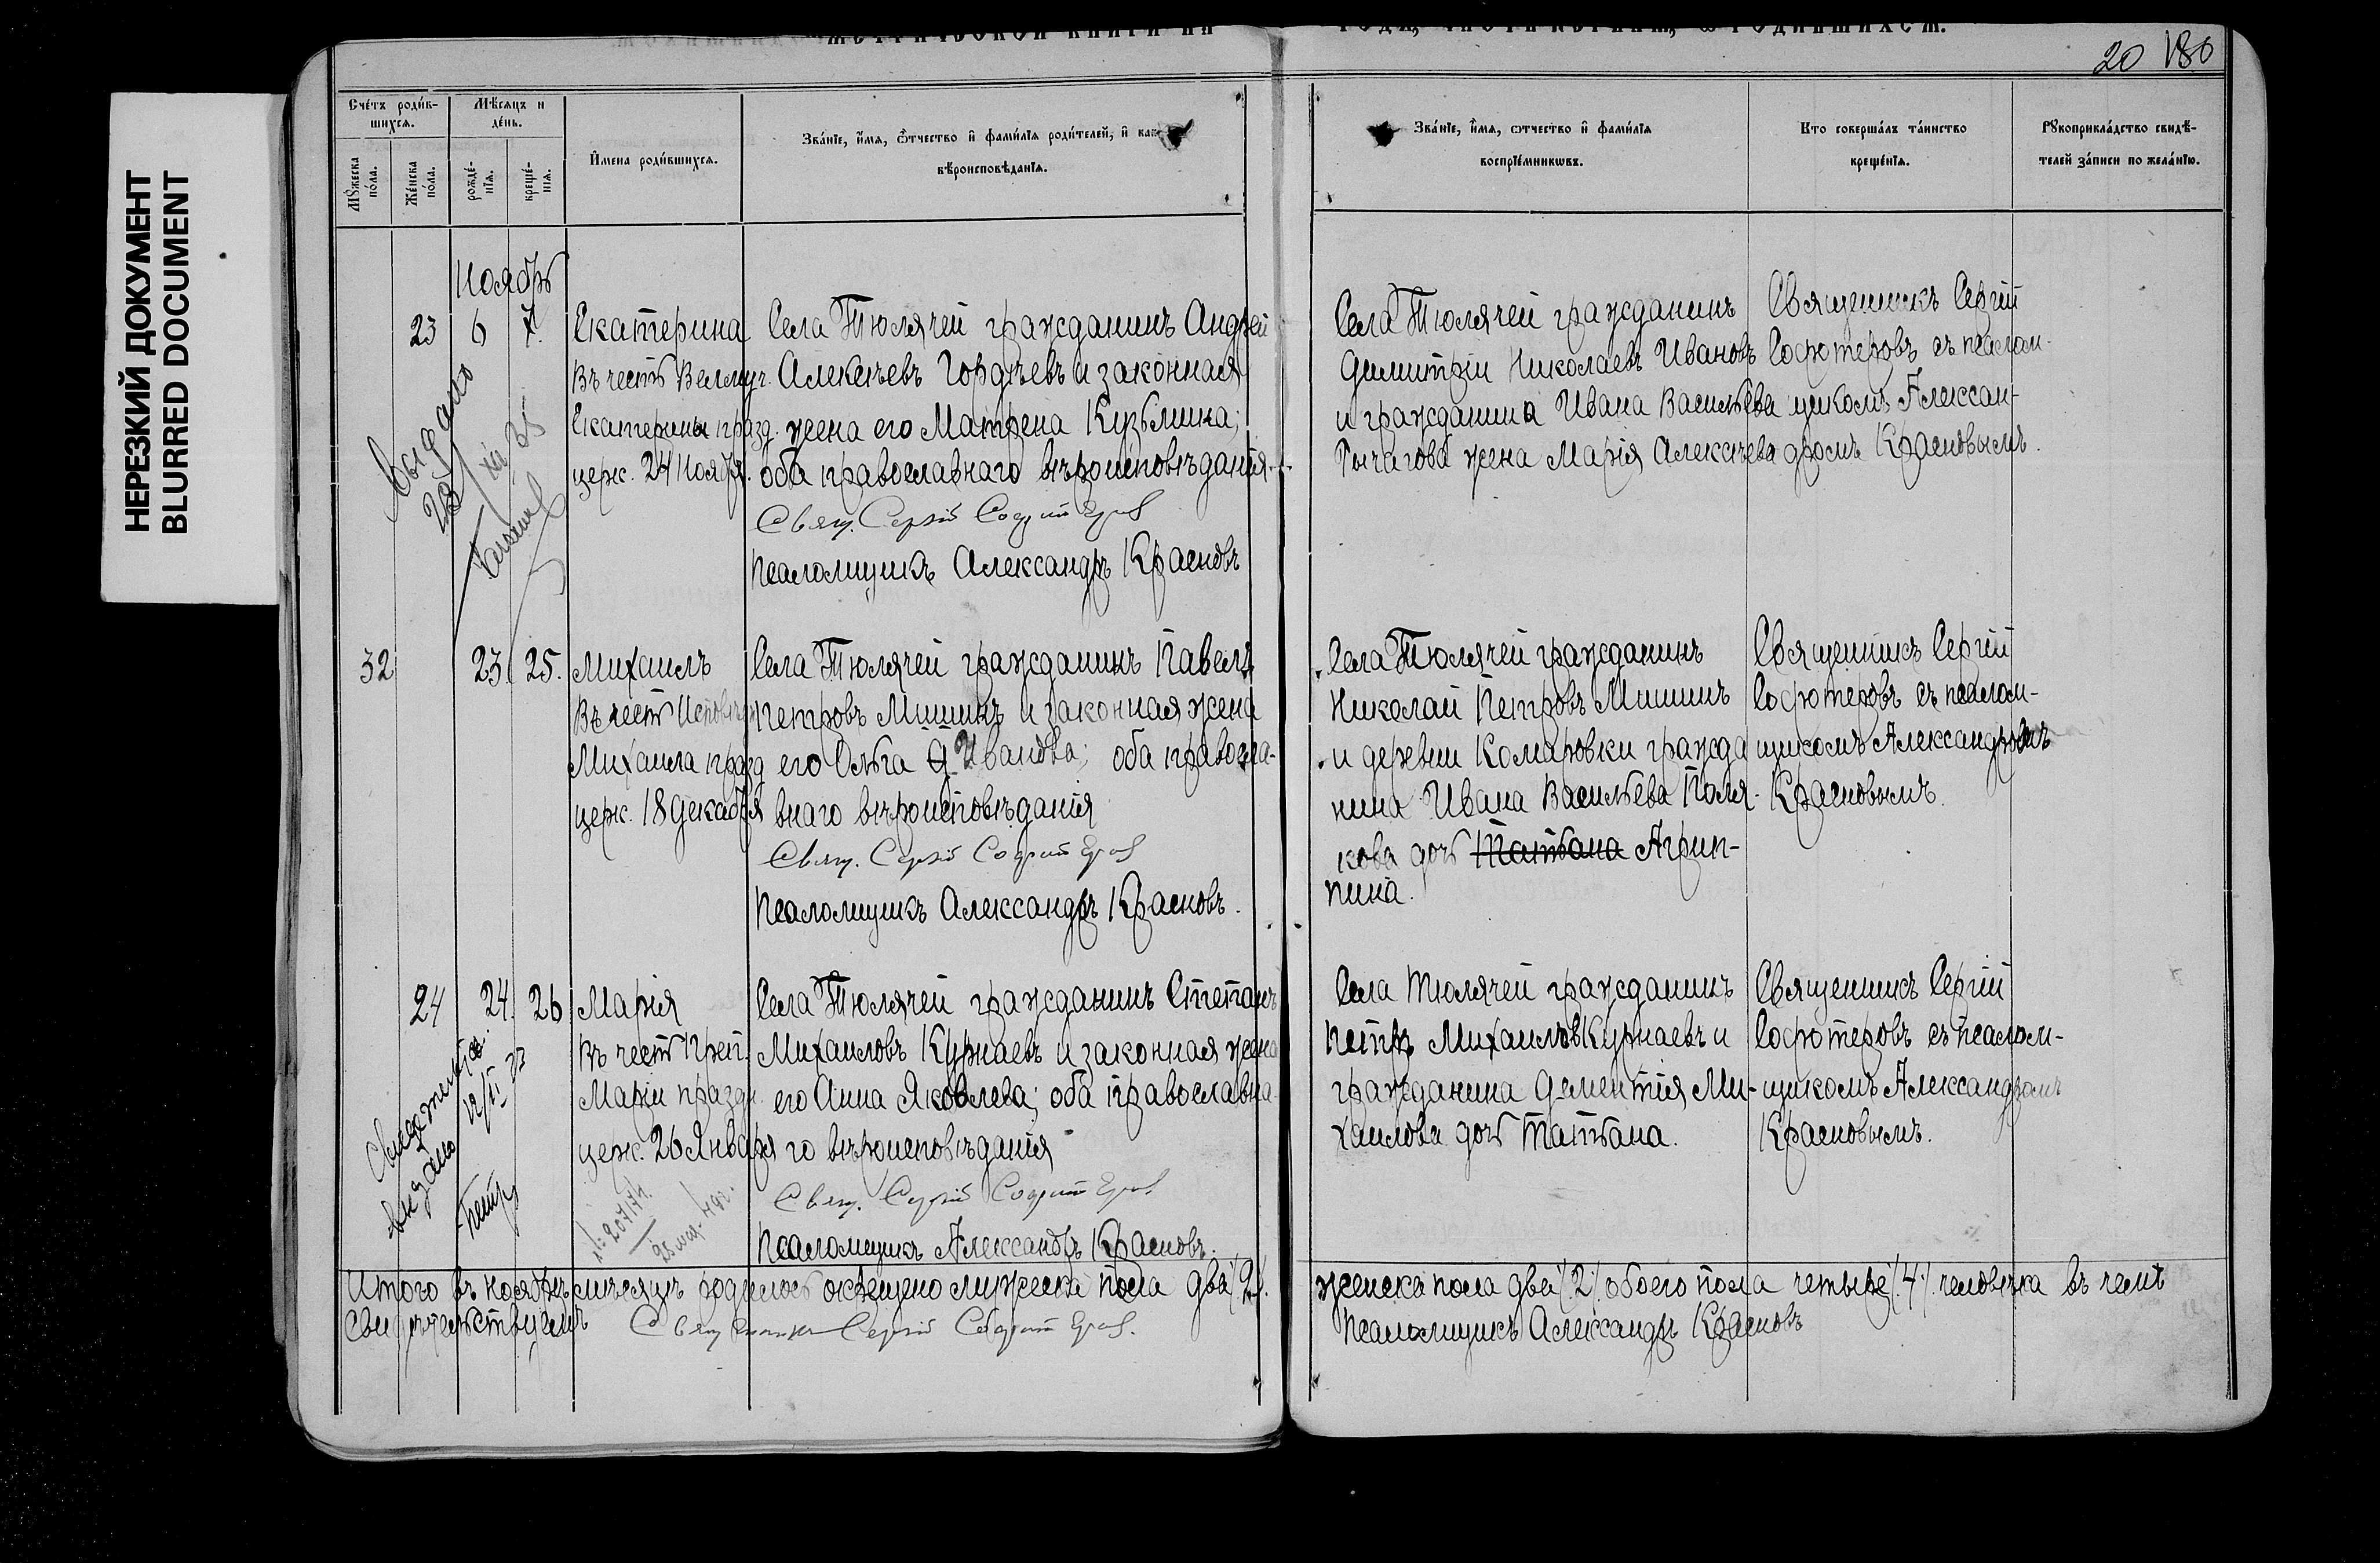 НЕРЕЗКИЙ ДОКУМЕНТ
BLURRED DOCUMENT
20 180
Счётъ родив-
шихся.
Мѣсяцъ и
день.
Мужеска
пола.
Женска
пола.
рожде-
нія.
креще-
нія.
Имена родившихся.
Званіе, имя, отчество и фамилія родителей, и как
вѣроисповѣданія.
Званіе, имя, отчество и фамилія
воспріемниковъ.
Кто совершалъ таинство
крещенія.
Рукоприкладство свидѣ-
телей записи по желанію.
Ноябрь
23 6 7.
Екатерина
Въ честь Великмуч.
Екатерины празд.
церк. 24 Ноября.
Села Тюлячей гражданинъ Андрей
Алексѣевъ Гордѣевъ и законная
жена его Матрена Кузьмина;
оба православнаго вѣроисповѣданія
Свящ. Сергій Софотеровъ
Псаломщикъ Александръ Красновъ
Села Тюлячей гражданинъ
Димитрій Николаевъ Ивановъ
и гражданина Ивана Васильева
Рычагова жена Марія Алексѣева
Священникъ Сергій
Софотеровъ съ псалом-
щикомъ Алексан-
дромъ Красновымъ.
Выдано
32 23. 25.
Михаилъ
Въ честь Исповѣд
Михаила празд
церк. 18 декабря
Села Тюлячей гражданинъ Павелъ
Петровъ Мишинъ и законная жена
его Ольга Иванова; оба правосла-
внаго вѣроисповѣданія
Свящ. Сергій Софотеровъ
Псаломщикъ Александръ Красновъ.
Села Тюлячей гражданинъ
Николай Петровъ Мишинъ
и деревни Комаровки гражда
нина Ивана Васильева Поля-
кова дочь Татьяна Агрип-
пина.
Священникъ Сергій
Софотеровъ съ псалом-
щикомъ Александромъ
Красновымъ.
24 24. 26
Марія
Въ честь Преп.
Маріи праздн.
церк. 26 Января
Села Тюлячей гражданинъ Степанъ
Михаиловъ Курнаевъ и законная жена
его Анна Яковлева; оба православна-
го вѣроисповѣданія
Свящ. Сергій Софотеровъ
Псаломщикъ Александръ Красновъ.
Села Тюлячей гражданинъ
Петръ Михаиловъ Курнаевъ и
гражданина Дементія Ми-
хаилова дочь Татьяна.
Священникъ Сергій
Софотеровъ съ псалом-
щикомъ Александромъ
Красновымъ.
выдано
Итого въ ноябрѣ мѣсяцѣ родилось окрещено мужеска пола два /2/. женска пола два /2/. обоего пола четыре /4/. человѣка въ чемъ
свидѣтельствуемъ Священникъ Сергій Софотеровъ. Псаломщикъ Александръ Красновъ